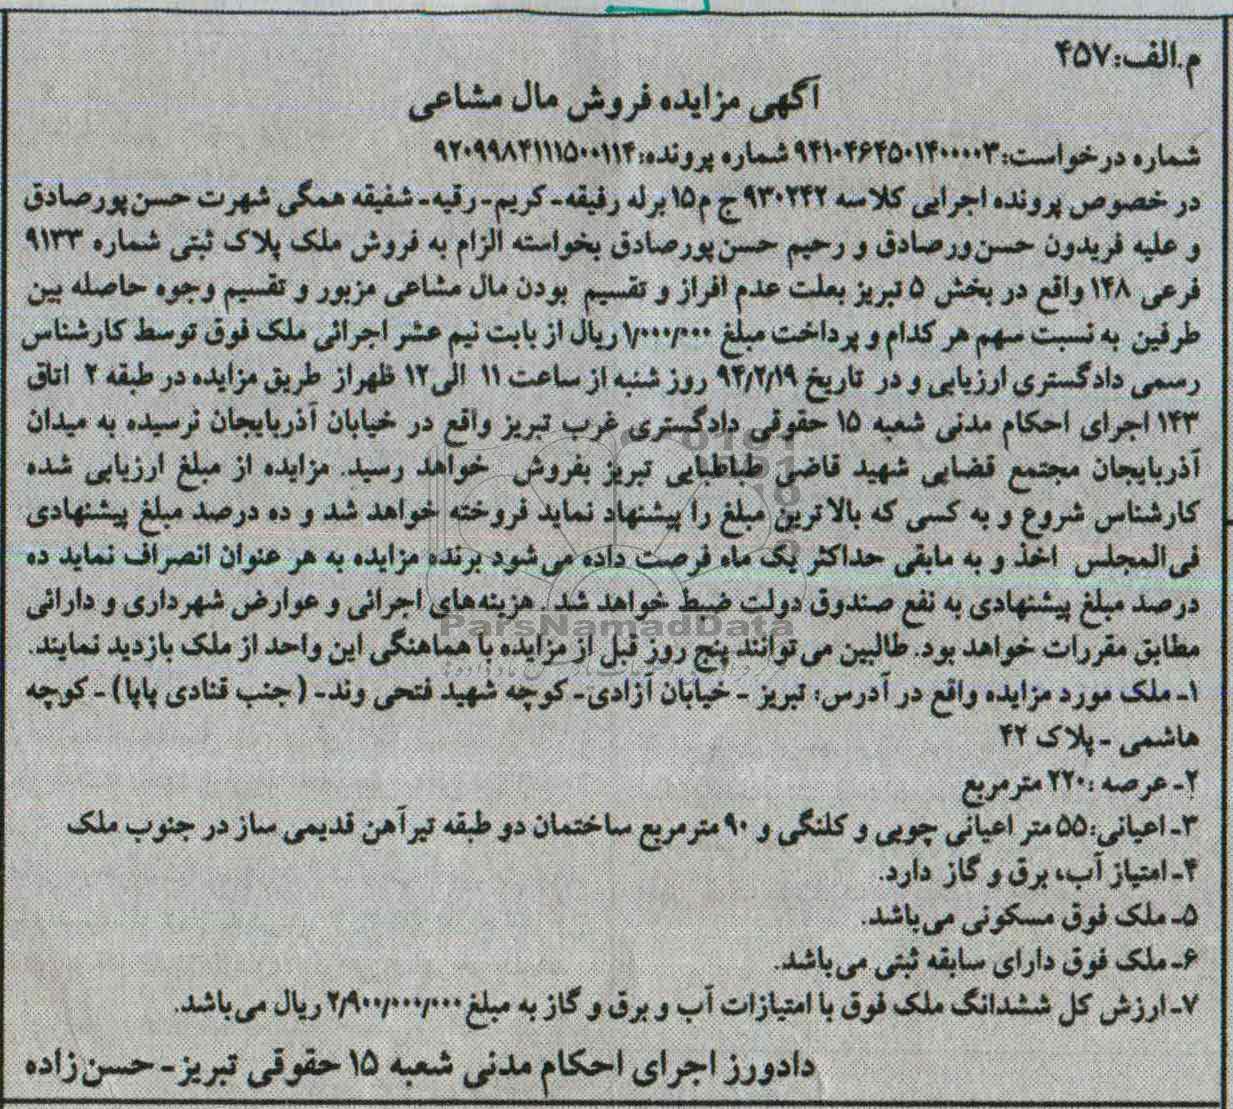 م.الف:۴۵۷
آگهی مزایده فروش مال مشاعی
شماره درخواست: ۹۴۱۰۴۶۴۵۰۱۴۰۰۰۰۳ شماره پرونده: ۹۲۰۹۹۸۴۱۱۱۵۰۰۱۱۴
در خصوص پرونده اجرایی کلاسه ۹۳۰۲۴۲ ج م۱۵ برله رفیقه- کریم- رقیه- شفیقه همگی شهرت حسن‌پورصادق
و علیه فریدون حسن‌ورصادق و رحیم حسن‌پورصادق بخواسته الزام به فروش ملک پلاک ثبتی شماره ۹۱۳۳
فرعی ۱۴۸ واقع در بخش ۵ تبریز بعلت عدم افراز و تقسیم بودن مال مشاعی مزبور و تقسیم وجوه حاصله بین
طرفین به نسبت سهم هر کدام و پرداخت مبلغ ۱/۰۰۰/۰۰۰ ریال از بابت نیم عشر اجرائی ملک فوق توسط کارشناس
رسمی دادگستری ارزیابی و در تاریخ ۹۴/۲/۱۹ روز شنبه از ساعت ۱۱ الی۱۲ ظهراز طریق مزایده در طبقه ۲ اتاق
۱۴۳ اجرای احکام مدنی شعبه ۱۵ حقوقی دادگستری غرب تبریز واقع در خیابان آذربایجان نرسیده به میدان
آذربایجان مجتمع قضایی شهید قاضی طباطبایی تبریز بفروش خواهد رسید. مزایده از مبلغ ارزیابی شده
کارشناس شروع و به کسی که بالاترین مبلغ را پیشنهاد نماید فروخته خواهد شد و ده درصد مبلغ پیشنهادی
فی‌المجلس اخذ و به مابقی حداکثر یک ماه فرصت داده می‌شود برنده مزایده به هر عنوان انصراف نماید ده
درصد مبلغ پیشنهادی به نفع صندوق دولت ضبط خواهد شد. هزینه‌های اجرائی و عوارض شهرداری و دارائی
ParsNamadData
مطابق مقررات خواهد بود. طالبین می‌توانند پنج روز قبل از مزایده با هماهنگی این واحد از ملک بازدید نمایند.
۱- ملک مورد مزایده واقع در آدرس: تبریز - خیابان آزادی- کوچه شهید فتحی وند- (جنب قنادی پاپا) - کوچه
هاشمی - پلاک ۴۲
۲- عرصه :۲۲۰ مترمربع
۳- اعیانی:۵۵ متر اعیانی چوبی و کلنگی و ۹۰ مترمربع ساختمان دو طبقه تیرآهن قدیمی ساز در جنوب ملک
۴- امتیاز آب، برق و گاز دارد.
۵- ملک فوق مسکونی می‌باشد.
۶- ملک فوق دارای سابقه ثبتی می‌باشد.
۷- ارزش کل ششدانگ ملک فوق با امتیازات آب و برق و گاز به مبلغ ۲/۹۰۰/۰۰۰/۰۰۰ ریال می‌باشد.
دادورز اجرای احکام مدنی شعبه ۱۵ حقوقی تبریز- حسن‌زاده